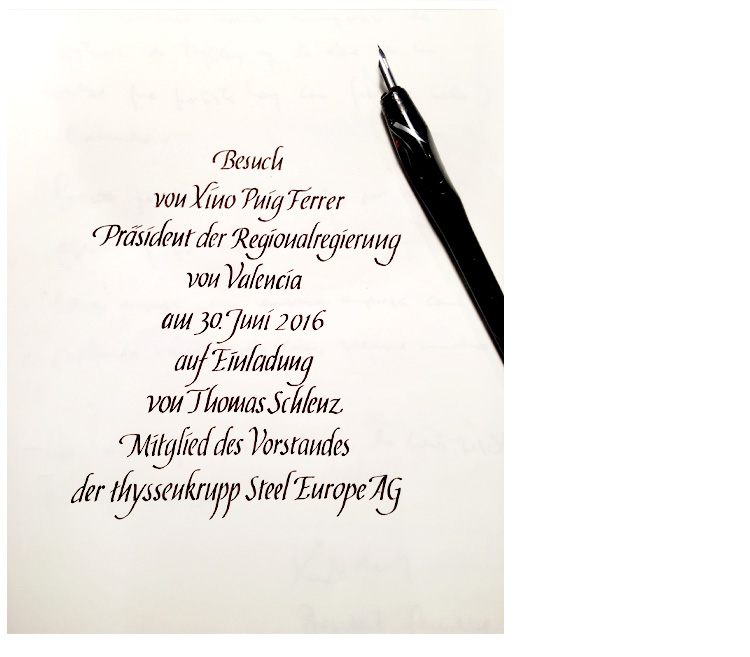 Besuch
von Ximo Puig Ferrer
Präsident der Regionalregierung
von Valencia
am 30. Juni 2016
auf Einladung
von Thomas Schlenz
Mitglied des Vorstandes
der thyssenkrupp Steel Europe AG